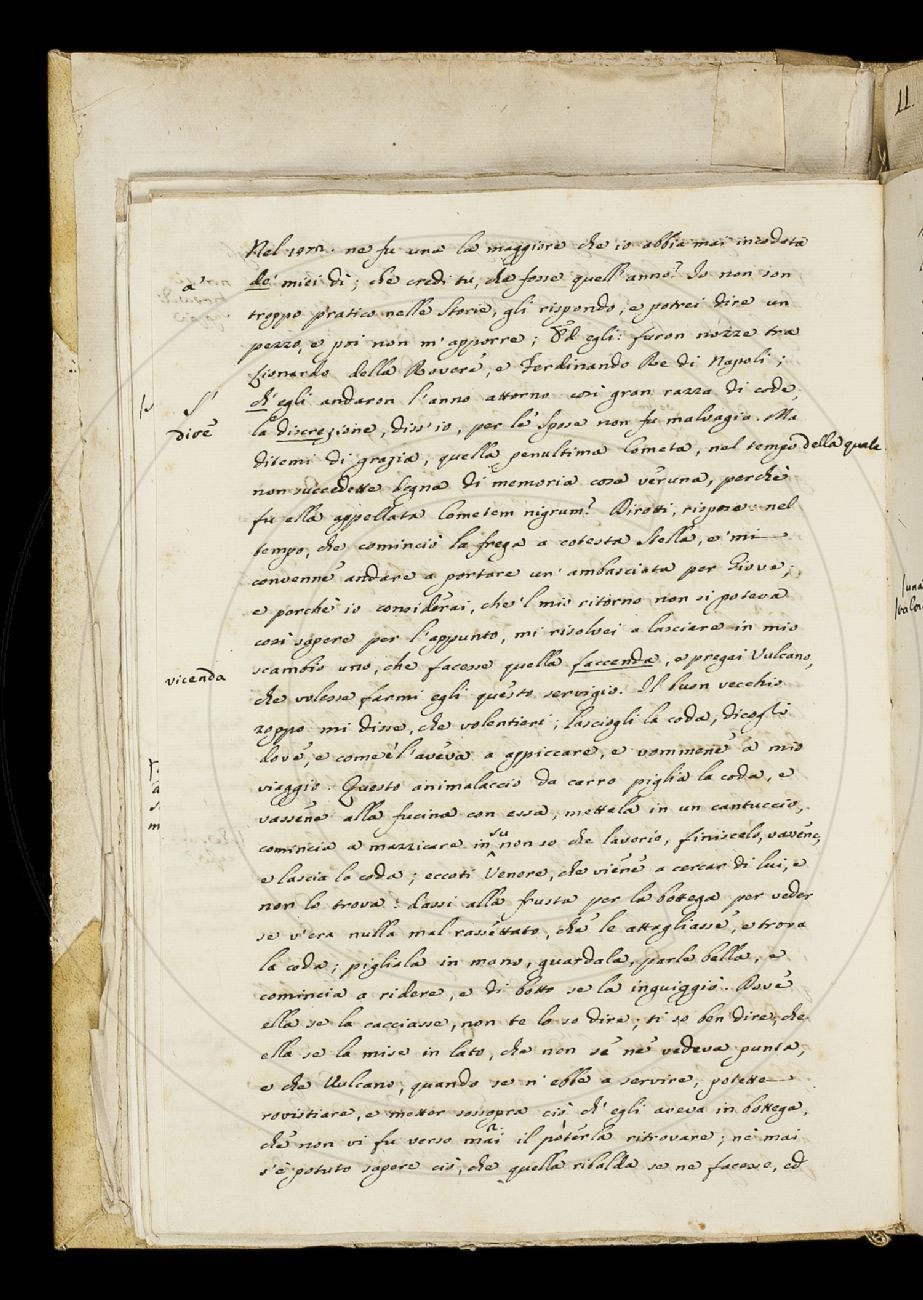 Nel 1472. ne fu una la maggiore che io abbia mai incodata
a'
de' miei dì; che credi tu, che fosse quell'anno? Io non son
troppo pratico nelle Storie, gli rispondo, e potrei dire un
pezzo, e poi non m'apporre; Ed egli: furon nozze tra
Lionardo della Rovere, e Ferdinando Re di Napoli;
ch'egli andaron l'anno attorno così gran razza di code,
dice
la discrezione, diss'io, per le spose non fu malvagia. Ma
ditemi di grazia, quella penultima Cometa, nel tempo della quale
non succedette degna di memoria cosa veruna, perchè
fu ella appellata Cometem nigrum? Dirotti, rispose: nel
tempo, che cominciò la frega a cotesta Stella, e' mi
convenne andare a portare un'ambasciata per Giove;
e perchè io considerai, che 'l mio ritorno non si poteva
così sapere per l'appunto, mi risolvei a lasciare in mio
scambio uno, che facesse quella faccenda, e pregai Vulcano,
vicenda
che volesse farmi egli questo servigio. Il buon vecchio
zoppo mi disse, che volentieri; lasciogli la coda, dicogli
dove, e come e' l'aveva a appiccare, e vommene a mio
viaggio. Questo animalaccio da carro piglia la coda, e
vassene alla fucina con essa, mettela in un cantuccio,
comincia a mazzicare in su non so che lavorio, finiscelo, vavene,
e lascia la coda; eccoti Venere, che viene a cercar di lui, e
non lo trova: dassi alla frusta per la bottega per veder
se v'era nulla mal rassettato, che le attagliasse, e trova
la coda; pigliala in mano, guardala, parle bella, e
comincia a ridere, e di botto se la inguiggiò. Dove
ella se la cacciasse, non te lo so dire; ti so ben dire, che
ella se la mise in lato, che non se ne vedeva punta,
e che Vulcano, quando se n'ebbe a servire, potette
rovistiare, e metter sossopra ciò ch'egli aveva in bottega,
che non vi fu verso mai il poterla ritrovare; nè mai
s'è potuto sapere ciò, che quella ribalda se ne facesse, ed
11.